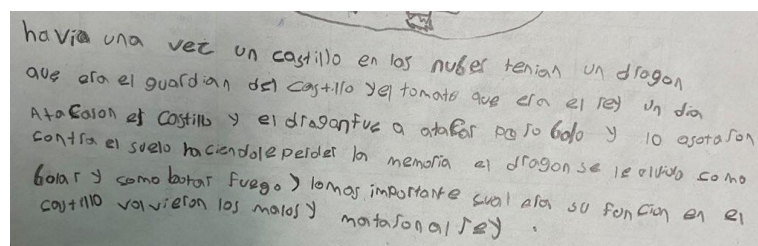 havia una vez un castillo en las nubes tenian un dragon
que era el guardian del castillo y el tomate que era el rey un dia
Atacaron el castillo y el dragon fue a atacar pero bolo y lo asotaron
contra el suelo haciendole perder la memoria al dragon se le olvido como
bolar y como botar fuego y lo mas importante cual era su funcion en el
castillo volvieron los malos y mataron al rey.